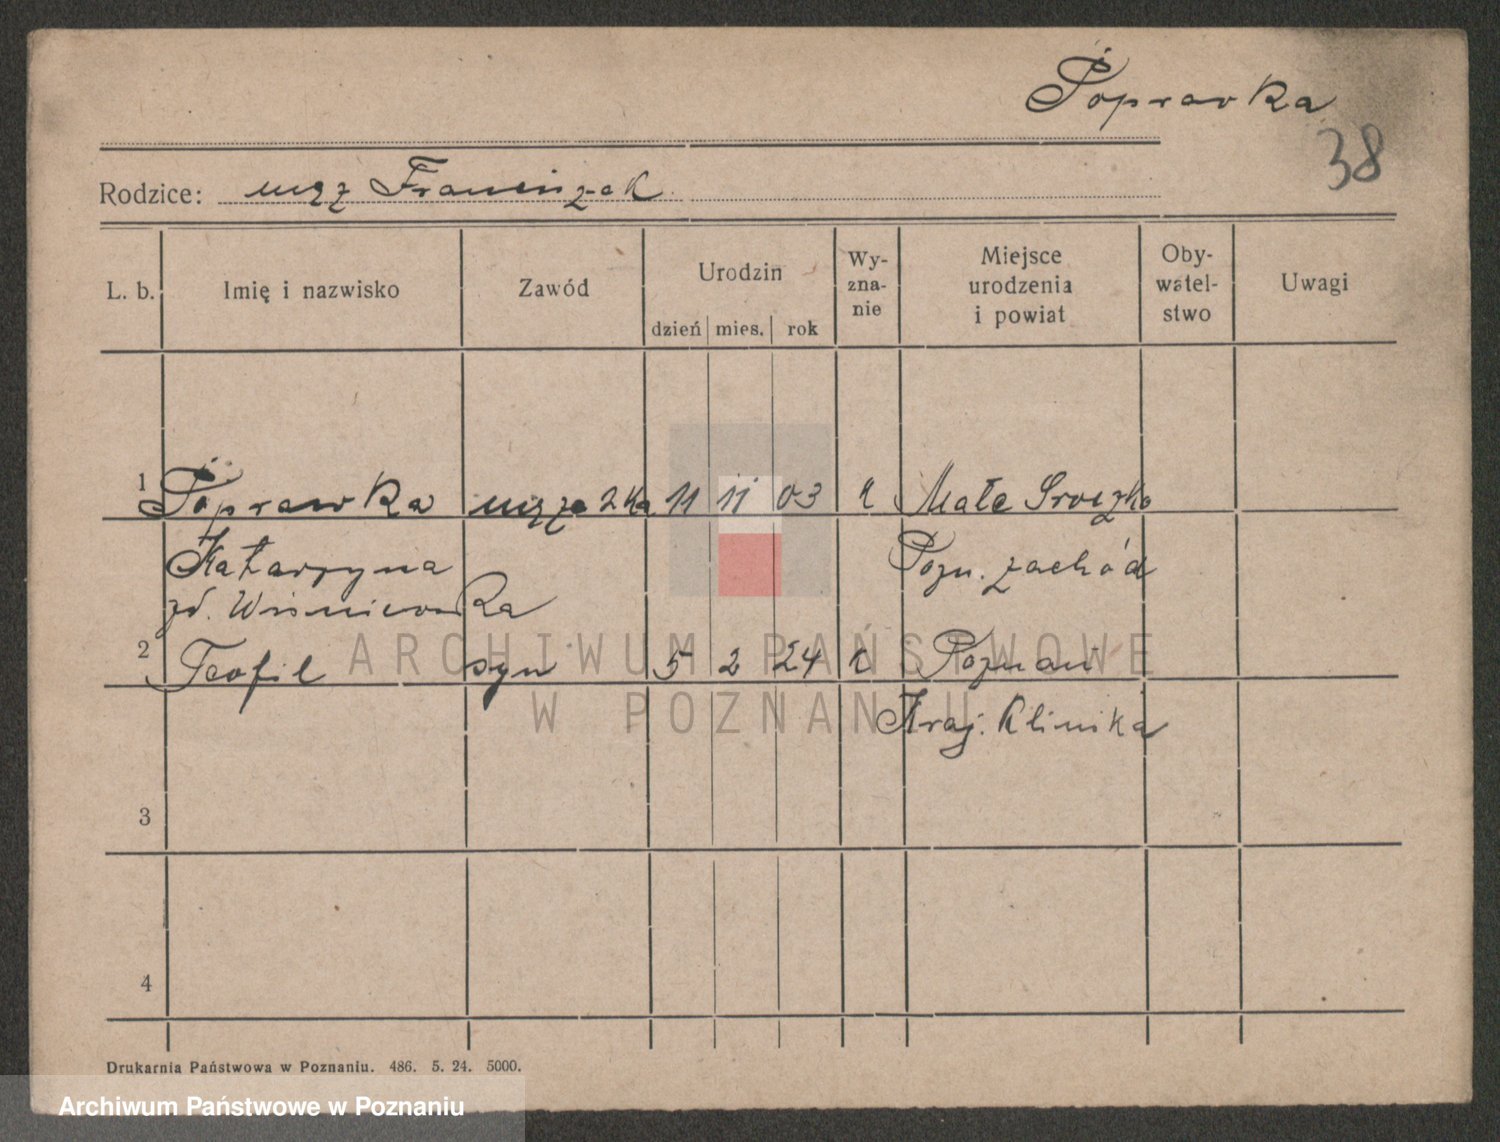 Poprawka
38
Rodzice: mąż Franciszek
L. b. Imię i nazwisko Zawód Urodzin dzień mies. rok Wy-zna-nie Miejsce urodzenia i powiat Oby-watel-stwo Uwagi
1 Poprawka 11 11 03 k Małe
Katarzyna Pozn. zachód
zd. Wiśniewska
2 Teofil syn 5 2 24 k Poznań
Kraj. Klinika
3
4
Drukarnia Państwowa w Poznaniu. 486. 5. 24. 5000.
ARCHIWUM PAŃSTWOWE
W POZNANIU
Archiwum Państwowe w Poznaniu